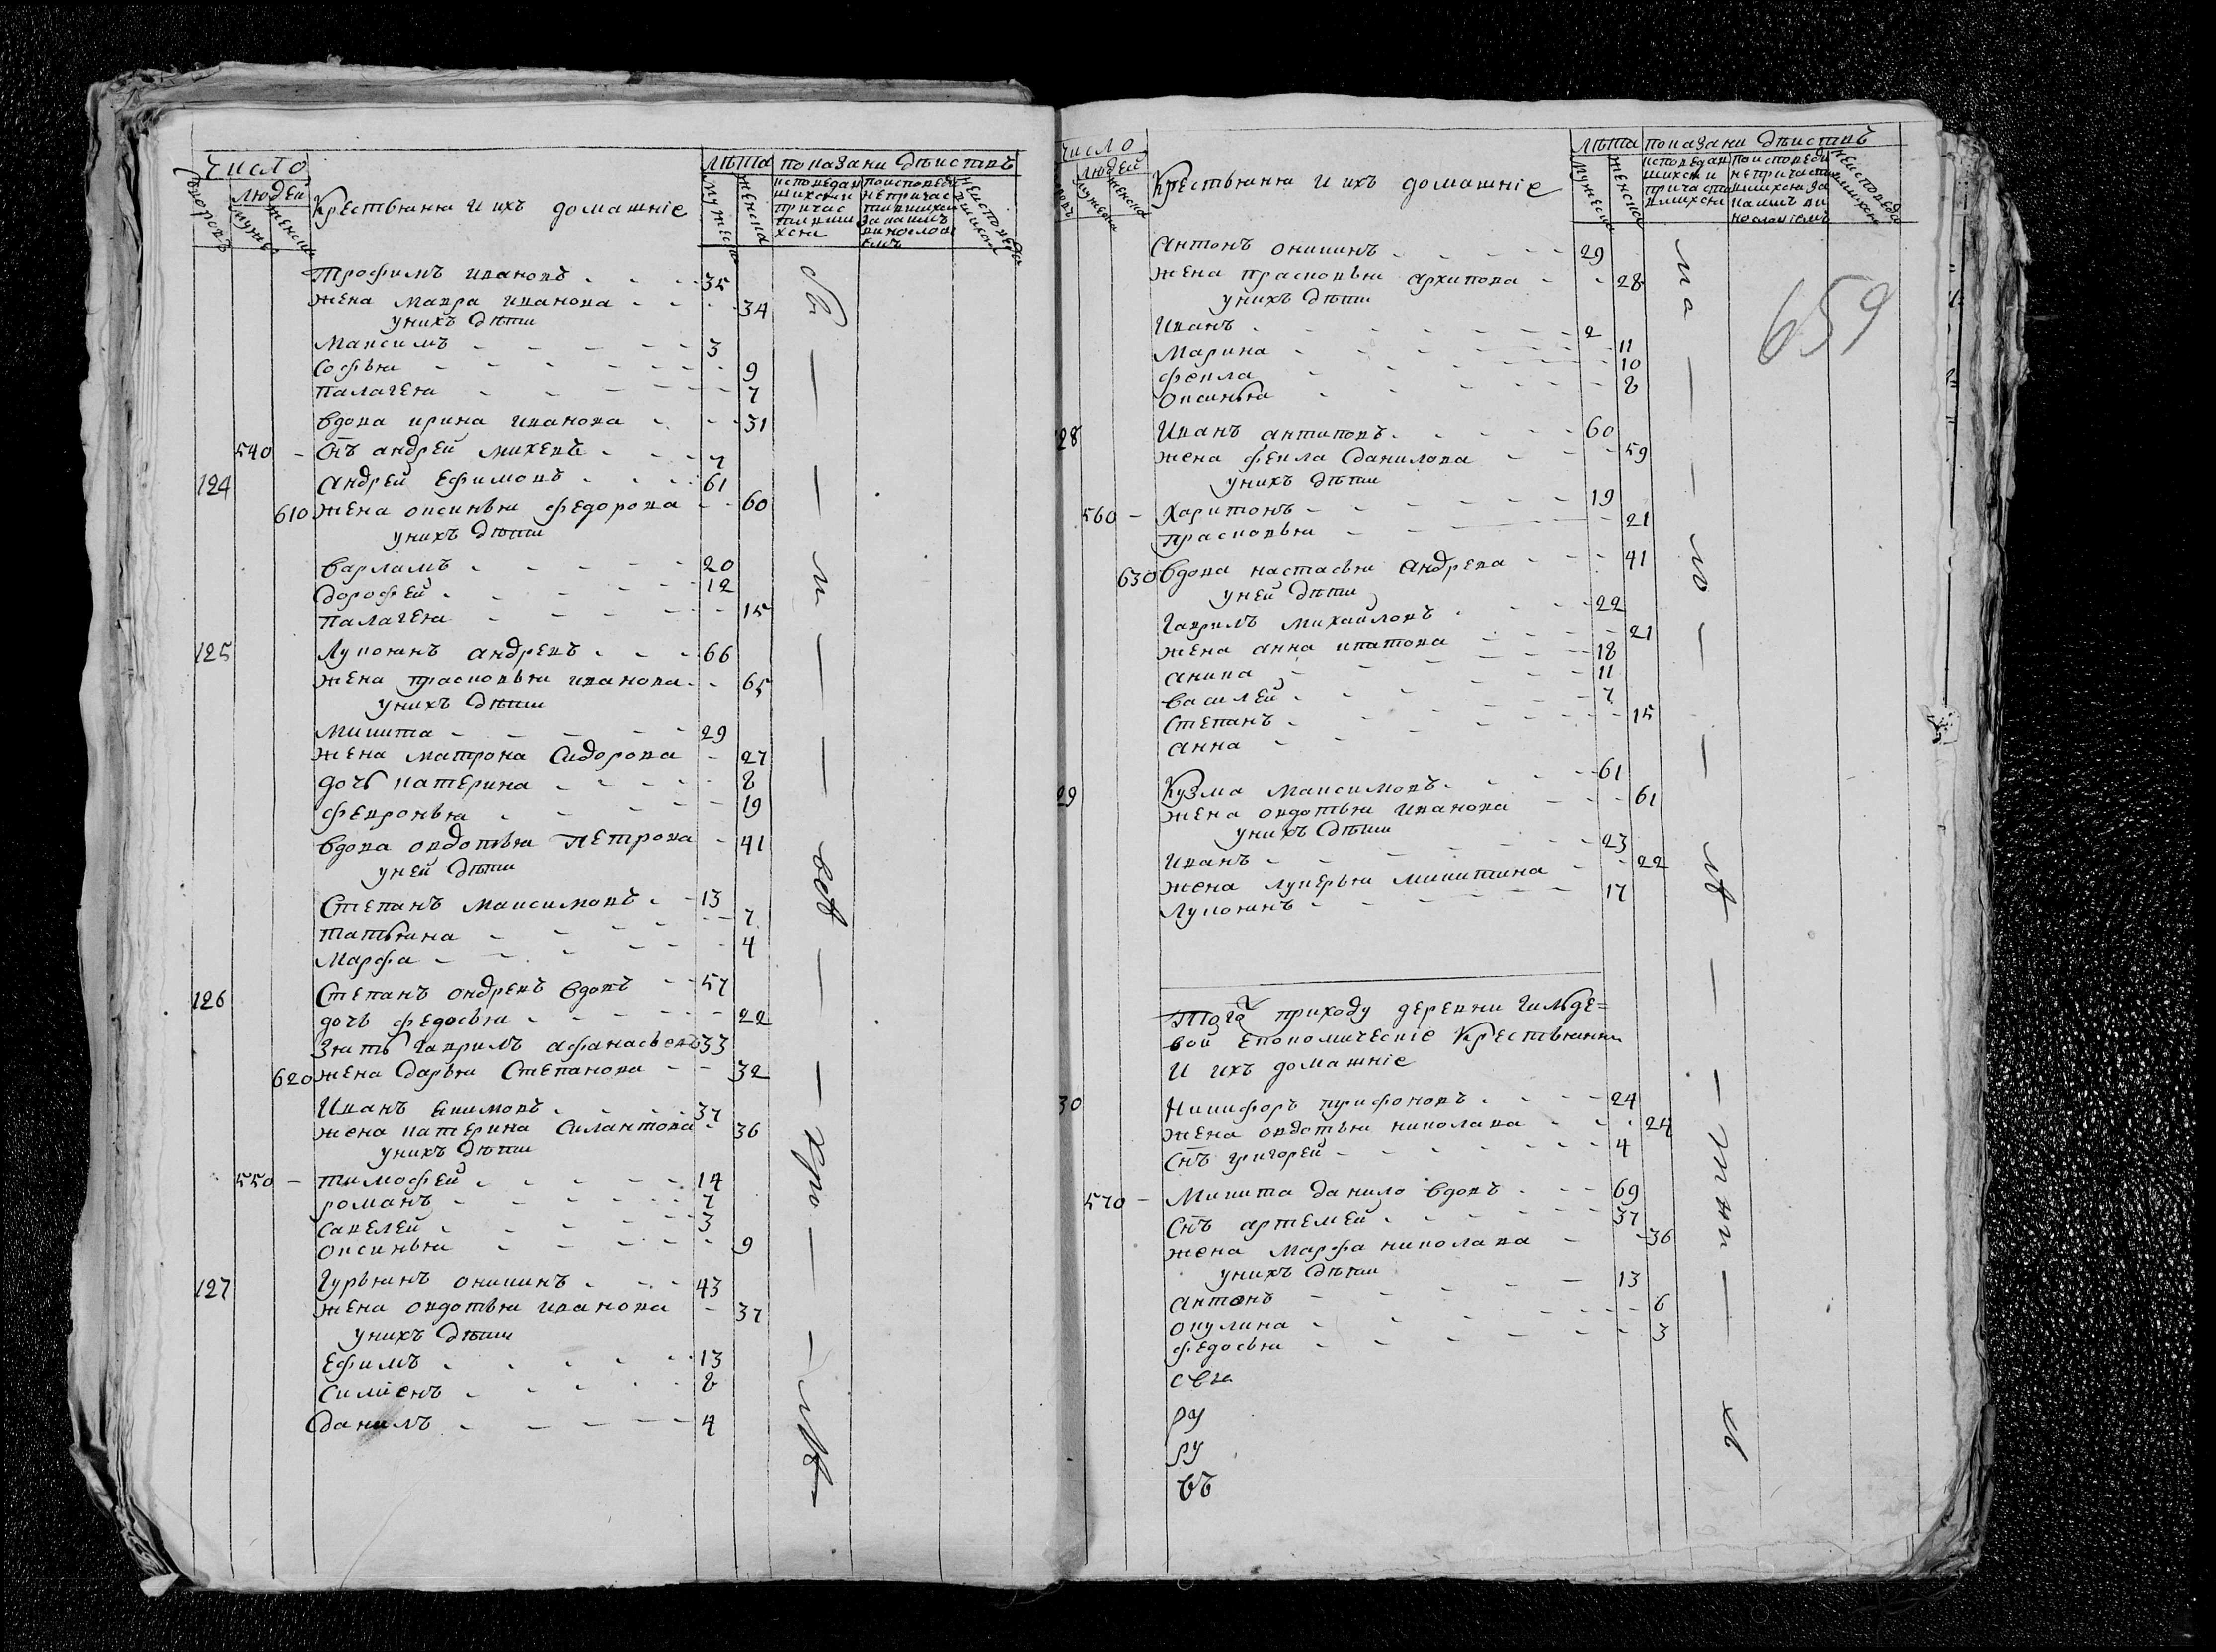 число
Дворовъ
людей
мужес
женска
Крестьяня и ихъ домашніе
лѣта
мужеска
женска
показани дѣиствъ
исповедав
шихся и
причас
тивши
хся
поисповеди
непричас
тившихся
закакимъ
винослові
емъ
неисповеда
вшихся
Трофимъ Ивановъ 35
жена Мавра Иванова 34
уникъ дѣти
Максимъ 3
Софья 9
Палагея 7
вдова Ирина Иванова 31
540 - Снъ Андрей Михевъ 7
124 Андрей Ефимовъ 61
610 жена Оксинья Федорова 60
унихъ дѣти
Варламъ 20
Дорофей 12
Палагея 15
125 Лукоянъ Андревъ 66
жена Прасковья Иванова 65
унихъ дѣти
Микита 29
жена Матрона Сидорова 27
дочь Катерина 8
Февронья 19
вдова Овдотья Петрова 41
уней дѣти
Степанъ Максимовъ 13
Татьяна 7
Марфа 4
126 Степанъ Ондревъ вдовъ 57
дочь Федосья 22
Зять Гаврилъ Афанасьевъ 33
620 жена Дарья Степанова 32
Иванъ Екимовъ 37
жена Катерина Силантова 36
унихъ дѣти
550 - Тимофей 14
Романъ 7
Савелей 3
Оксинья 9
127 Гурьянъ Оникинъ 43
жена Овдотья Иванова 37
унихъ дѣти
Ефимъ 13
Симіенъ 8
Данилъ 4
число
людей
мужеска
женска
Крестьяня и ихъ домашніе
лѣта
мужеска
женска
показани дѣиствъ
исповедав
шихся и
причасти
вшихся
поисповеди
непричасти
вшихся за
какимъ ви
нословіемъ
неисповеда
вшихся
659
Антонъ Оникинъ 29
жена Прасковья Архипова 28
унихъ дѣти
Иванъ 2
Марина 11
Фекла 10
Оксинья 8
28 Иванъ Антиповъ 60
жена Фекла Данилова 59
унихъ дѣти
560 - Харитонъ 19
Прасковья 21
630 вдова Настасья Андрева 41
уней дѣти
Гаврилъ Михайловъ 22
жена Анна Ипатова 21
Аника 18
Василей 11
Степанъ 7
Анна 15
29 Кузма Максимовъ 61
жена Овдотья Иванова 61
унихъ дѣти
Иванъ 23
жена Лукерья Микитина 22
Лукоянъ 17
Тогѡ приходу деревни Гильде=
вой Економическіе Крестьяня
и ихъ домашніе
30 Никифоръ Трифоновъ 24
жена Овдотья Николава 24
Снъ Григорей 4
570 - Микита Данило вдовъ 69
Снъ Артемей 37
жена Марфа Николава 36
унихъ дѣти
Антонъ 13
Окулина 6
Федосья 3
свя
ру
ру
въ